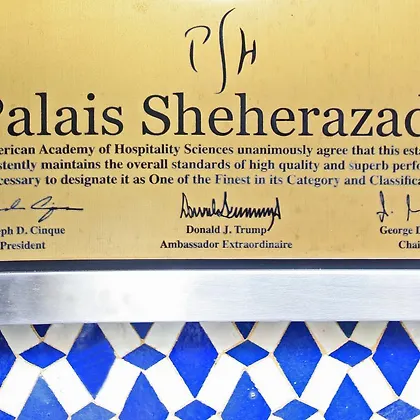 PSH
Palais Sheherazad
erican Academy of Hospitality Sciences unanimously agree that this esta
stently maintains the overall standards of high quality and superb perfo
cessary to designate it as One of the Finest in its Category and Classifica
ph D. Cinque Donald J. Trump George D
President Ambassador Extraordinaire Chai